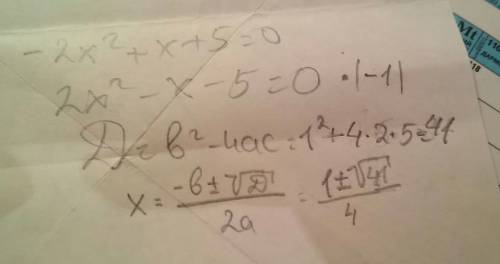 -2x² + x + 5 = 0
2x² - x - 5 = 0 ·|-1|
Д = в² - 4ас = 1² + 4·2·5 = 41
x = (-в ± √Д) / 2a = (1 ± √41) / 4
Mt
118